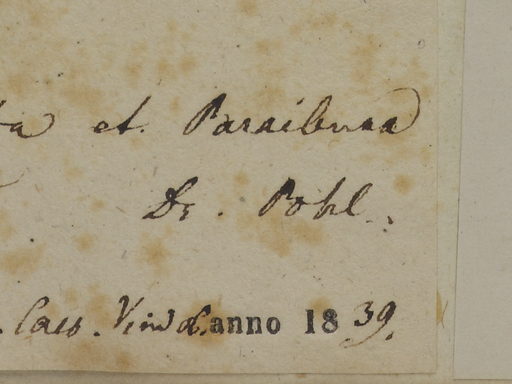 et. Paraibuna
Dr. Pohl.
Caes. Vind. anno 1839.